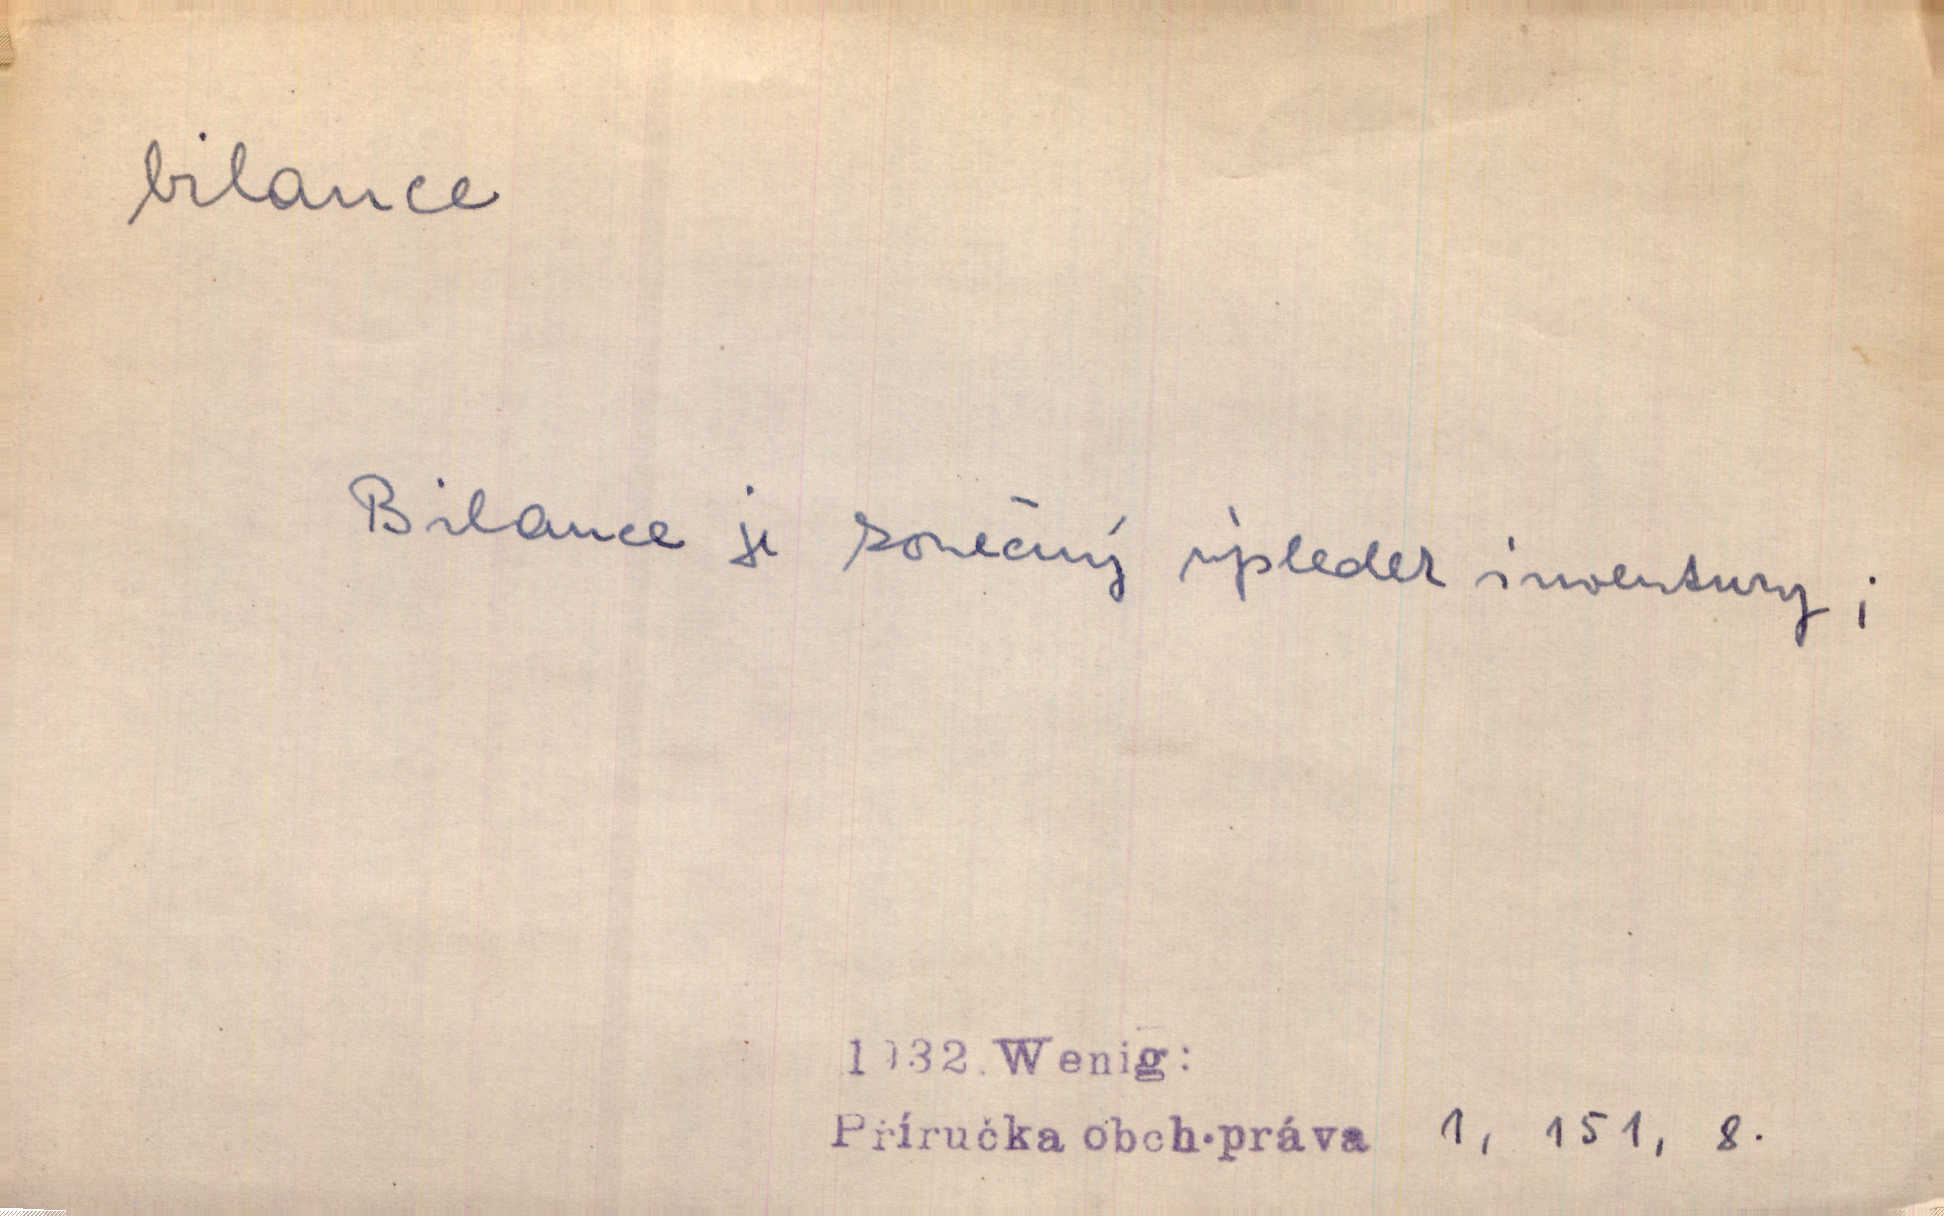 bilance
Bilance je konečný výsledek inventury;
1932. Wenig:
Příručka obch. práva 1, 151, 8.